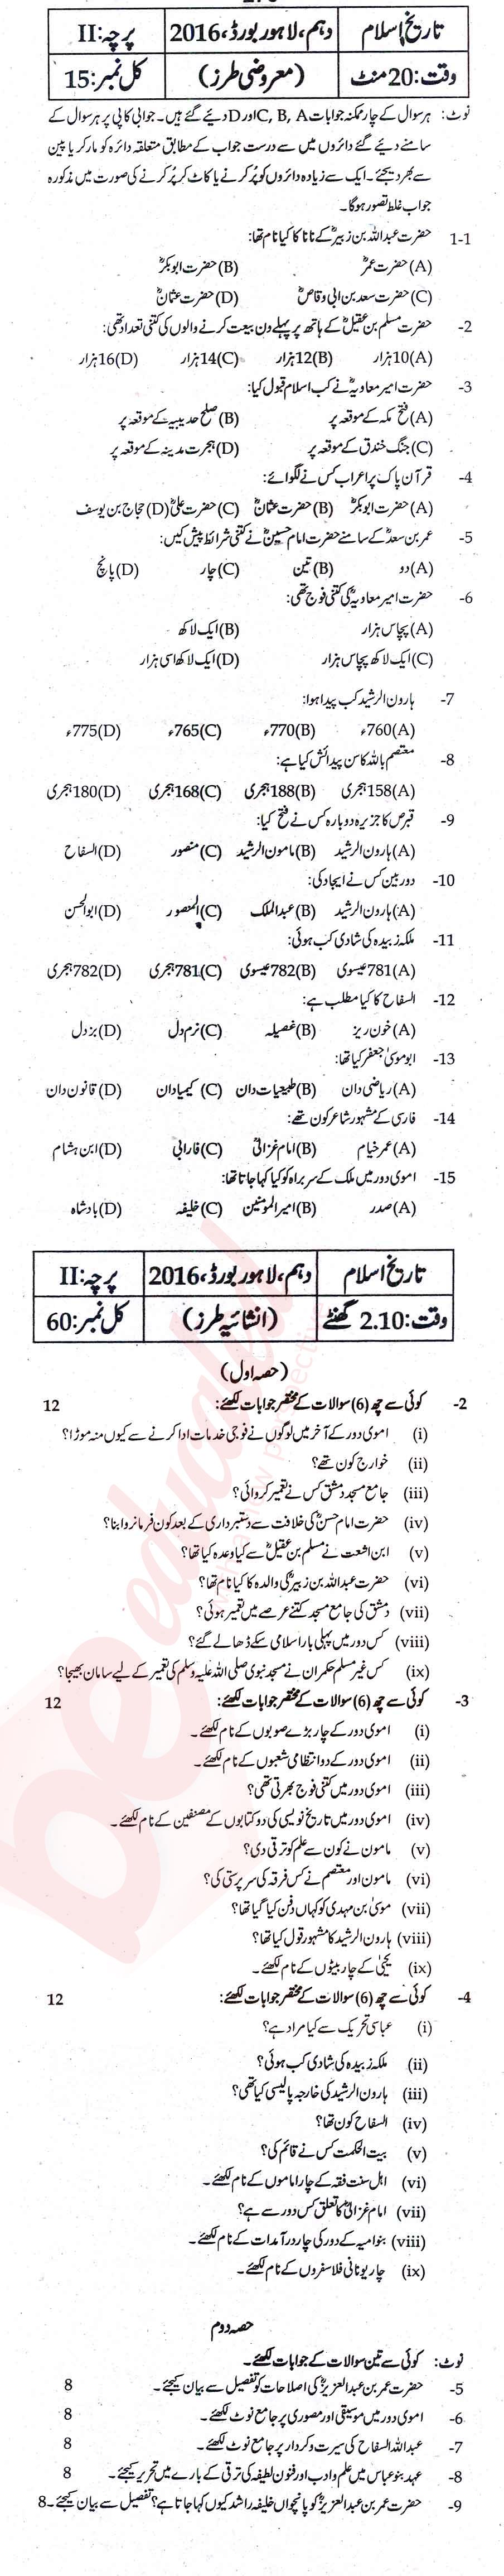 تاریخ اسلام دہم، لاہور بورڈ، 2016 پرچہ: II
وقت: 20 منٹ (معروضی طرز) کل نمبر: 15
نوٹ: ہر سوال کے چار ممکنہ جوابات C, B, A اور D دیئے گئے ہیں۔ جوابی کاپی پر ہر سوال کے
سامنے دیئے گئے دائروں میں سے درست جواب کے مطابق متعلقہ دائرہ کو مارکر یا پین
سے بھر دیجئے۔ ایک سے زیادہ دائروں کو پُر کرنے یا کاٹ کر پُر کرنے کی صورت میں مذکورہ
جواب غلط تصور ہوگا۔
1-1 حضرت عبداللہ بن زبیرؓ کے نانا کا کیا نام تھا:
(A) حضرت عمرؓ (B) حضرت ابوبکرؓ
(C) حضرت سعد بن ابی وقاصؓ (D) حضرت عثمانؓ
2- حضرت مسلم بن عقیلؓ کے ہاتھ پر پہلے دن بیعت کرنے والوں کی کتنی تعداد تھی:
(A) 10 ہزار (B) 12 ہزار (C) 14 ہزار (D) 16 ہزار
3- حضرت امیر معاویہؓ نے کب اسلام قبول کیا:
(A) فتح مکہ کے موقعہ پر (B) صلح حدیبیہ کے موقعہ پر
(C) جنگ خندق کے موقعہ پر (D) ہجرت مدینہ کے موقعہ پر
4- قرآن پاک پر اعراب کس نے لگوائے:
(A) حضرت ابوبکرؓ (B) حضرت عثمانؓ (C) حضرت علیؓ (D) حجاج بن یوسف
5- عمر بن سعد کے سامنے حضرت امام حسینؓ نے کتنی شرائط پیش کیں:
(A) دو (B) تین (C) چار (D) پانچ
6- حضرت امیر معاویہؓ کی کتنی فوج تھی:
(A) پچاس ہزار (B) ایک لاکھ
(C) ایک لاکھ پچاس ہزار (D) ایک لاکھ اسی ہزار
7- ہارون الرشید کب پیدا ہوا:
(A) 760ء (B) 770ء (C) 765ء (D) 775ء
8- معتصم باللہ کا سن پیدائش کیا ہے:
(A) 158 ہجری (B) 188 ہجری (C) 168 ہجری (D) 180 ہجری
9- قبرص کا جزیرہ دوبارہ کس نے فتح کیا:
(A) ہارون الرشید (B) مامون الرشید (C) منصور (D) السفاح
10- دوربین کس نے ایجاد کی:
(A) ہارون الرشید (B) عبدالملک (C) المنصور (D) ابوالحسن
11- ملکہ زبیدہ کی شادی کب ہوئی:
(A) 781 عیسوی (B) 782 عیسوی (C) 781 ہجری (D) 782 ہجری
12- السفاح کا کیا مطلب ہے:
(A) خون ریز (B) غصیلہ (C) نرم دل (D) بزدل
13- ابو موسیٰ جعفر کیا تھا:
(A) ریاضی دان (B) طبیعیات دان (C) کیمیا دان (D) قانون دان
14- فارسی کے مشہور شاعر کون تھے:
(A) عمر خیام (B) امام غزالیؒ (C) فارابی (D) ابن ہشام
15- اموی دور میں ملک کے سربراہ کو کیا کہا جاتا تھا:
(A) صدر (B) امیر المومنین (C) خلیفہ (D) بادشاہ
تاریخ اسلام دہم، لاہور بورڈ، 2016 پرچہ: II
وقت: 2.10 گھنٹے (انشائیہ طرز) کل نمبر: 60
(حصہ اول)
2- کوئی سے چھ (6) سوالات کے مختصر جوابات لکھئے: 12
(i) اموی دور کے آخر میں لوگوں نے فوجی خدمات ادا کرنے سے کیوں منہ موڑا؟
(ii) خوارج کون تھے؟
(iii) جامع مسجد دمشق کس نے تعمیر کروائی؟
(iv) حضرت امام حسنؓ کی خلافت سے دستبرداری کے بعد کون فرمانروا بنا؟
(v) ابن اشعت نے مسلم بن عقیلؓ سے کیا وعدہ کیا تھا؟
(vi) حضرت عبداللہ بن زبیرؓ کی والدہ کا کیا نام تھا؟
(vii) دمشق کی جامع مسجد کتنے عرصے میں تعمیر ہوئی؟
(viii) کس دور میں پہلی بار اسلامی سکے ڈھالے گئے؟
(ix) کس غیر مسلم حکمران نے مسجد نبوی صلی اللہ علیہ وسلم کی تعمیر کے لیے سامان بھیجا؟
3- کوئی سے چھ (6) سوالات کے مختصر جوابات لکھئے: 12
(i) اموی دور کے چار بڑے صوبوں کے نام لکھئے۔
(ii) اموی دور کے دو انتظامی شعبوں کے نام لکھئے۔
(iii) اموی دور میں کتنی فوج بھرتی تھی؟
(iv) اموی دور میں تاریخ نویسی کی دو کتابوں کے مصنفین کے نام لکھئے۔
(v) مامون نے کون سے علم کو ترقی دی؟
(vi) مامون اور معتصم نے کس فرقہ کی سرپرستی کی؟
(vii) موسیٰ بن مہدی کو کہاں دفن کیا گیا تھا؟
(viii) ہارون الرشید کا مشہور قول کیا تھا؟
(ix) یحییٰ کے چار بیٹوں کے نام لکھئے۔
4- کوئی سے چھ (6) سوالات کے مختصر جوابات لکھئے: 12
(i) عباسی تحریک سے کیا مراد ہے؟
(ii) ملکہ زبیدہ کی شادی کب ہوئی؟
(iii) ہارون الرشید کی خارجہ پالیسی کیا تھی؟
(iv) السفاح کون تھا؟
(v) بیت الحکمت کس نے قائم کی؟
(vi) اہل سنت فقہ کے چار اماموں کے نام لکھئے۔
(vii) امام غزالیؒ کا تعلق کس دور سے ہے؟
(viii) بنو امیہ کے دور کی چار درآمدات کے نام لکھئے۔
(ix) چار یونانی فلاسفروں کے نام لکھئے۔
حصہ دوم
نوٹ: کوئی سے تین سوالات کے جوابات لکھئے۔
5- حضرت عمر بن عبدالعزیزؒ کی اصلاحات کو تفصیل سے بیان کیجئے۔ 8
6- اموی دور میں موسیقی اور مصوری پر جامع نوٹ لکھئے۔ 8
7- عبداللہ السفاح کی سیرت و کردار پر جامع نوٹ لکھئے۔ 8
8- عہد بنو عباس میں علم و ادب اور فنون لطیفہ کی ترقی کے بارے میں تحریر کیجئے۔ 8
9- حضرت عمر بن عبدالعزیزؒ کو پانچواں خلیفہ راشد کیوں کہا جاتا ہے؟ تفصیل سے بیان کیجئے۔ 8